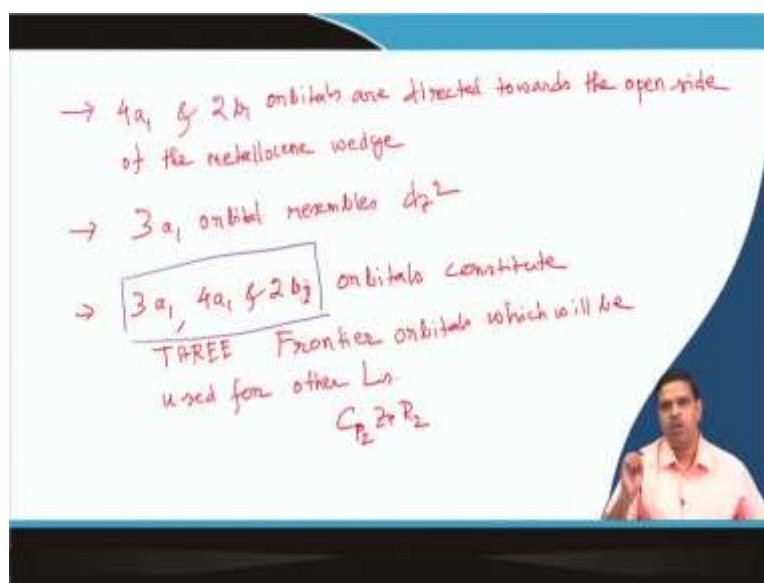 → 4a₁ & 2b₁ orbitals are directed towards the open side
of the metallocene wedge
→ 3a₁ orbital resembles dz²
→ 3a₁, 4a₁ & 2b₂ orbitals constitute
THREE Frontier orbitals which will be
used for other Ls
Cp₂ZrR₂